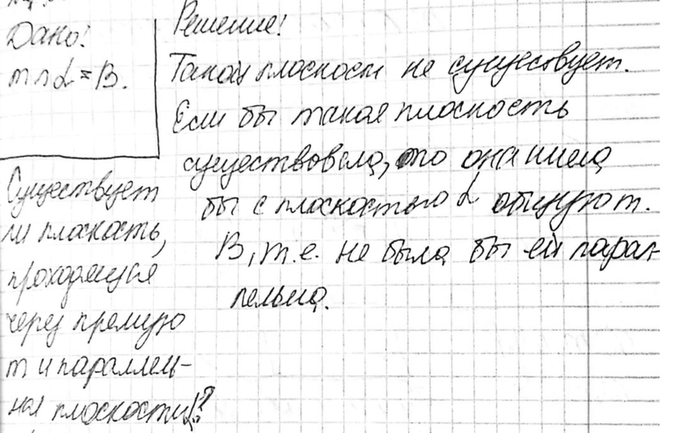 Дано:
m ∩ α = B.
Существует
ли плоскость,
проходящая
через прямую
m и параллель-
ная плоскости α?
Решение:
Такая плоскость не существует.
Если бы такая плоскость
существовала, то она имела
бы с плоскостью α общую т.
B, т.е. не была бы ей парал-
лельна.